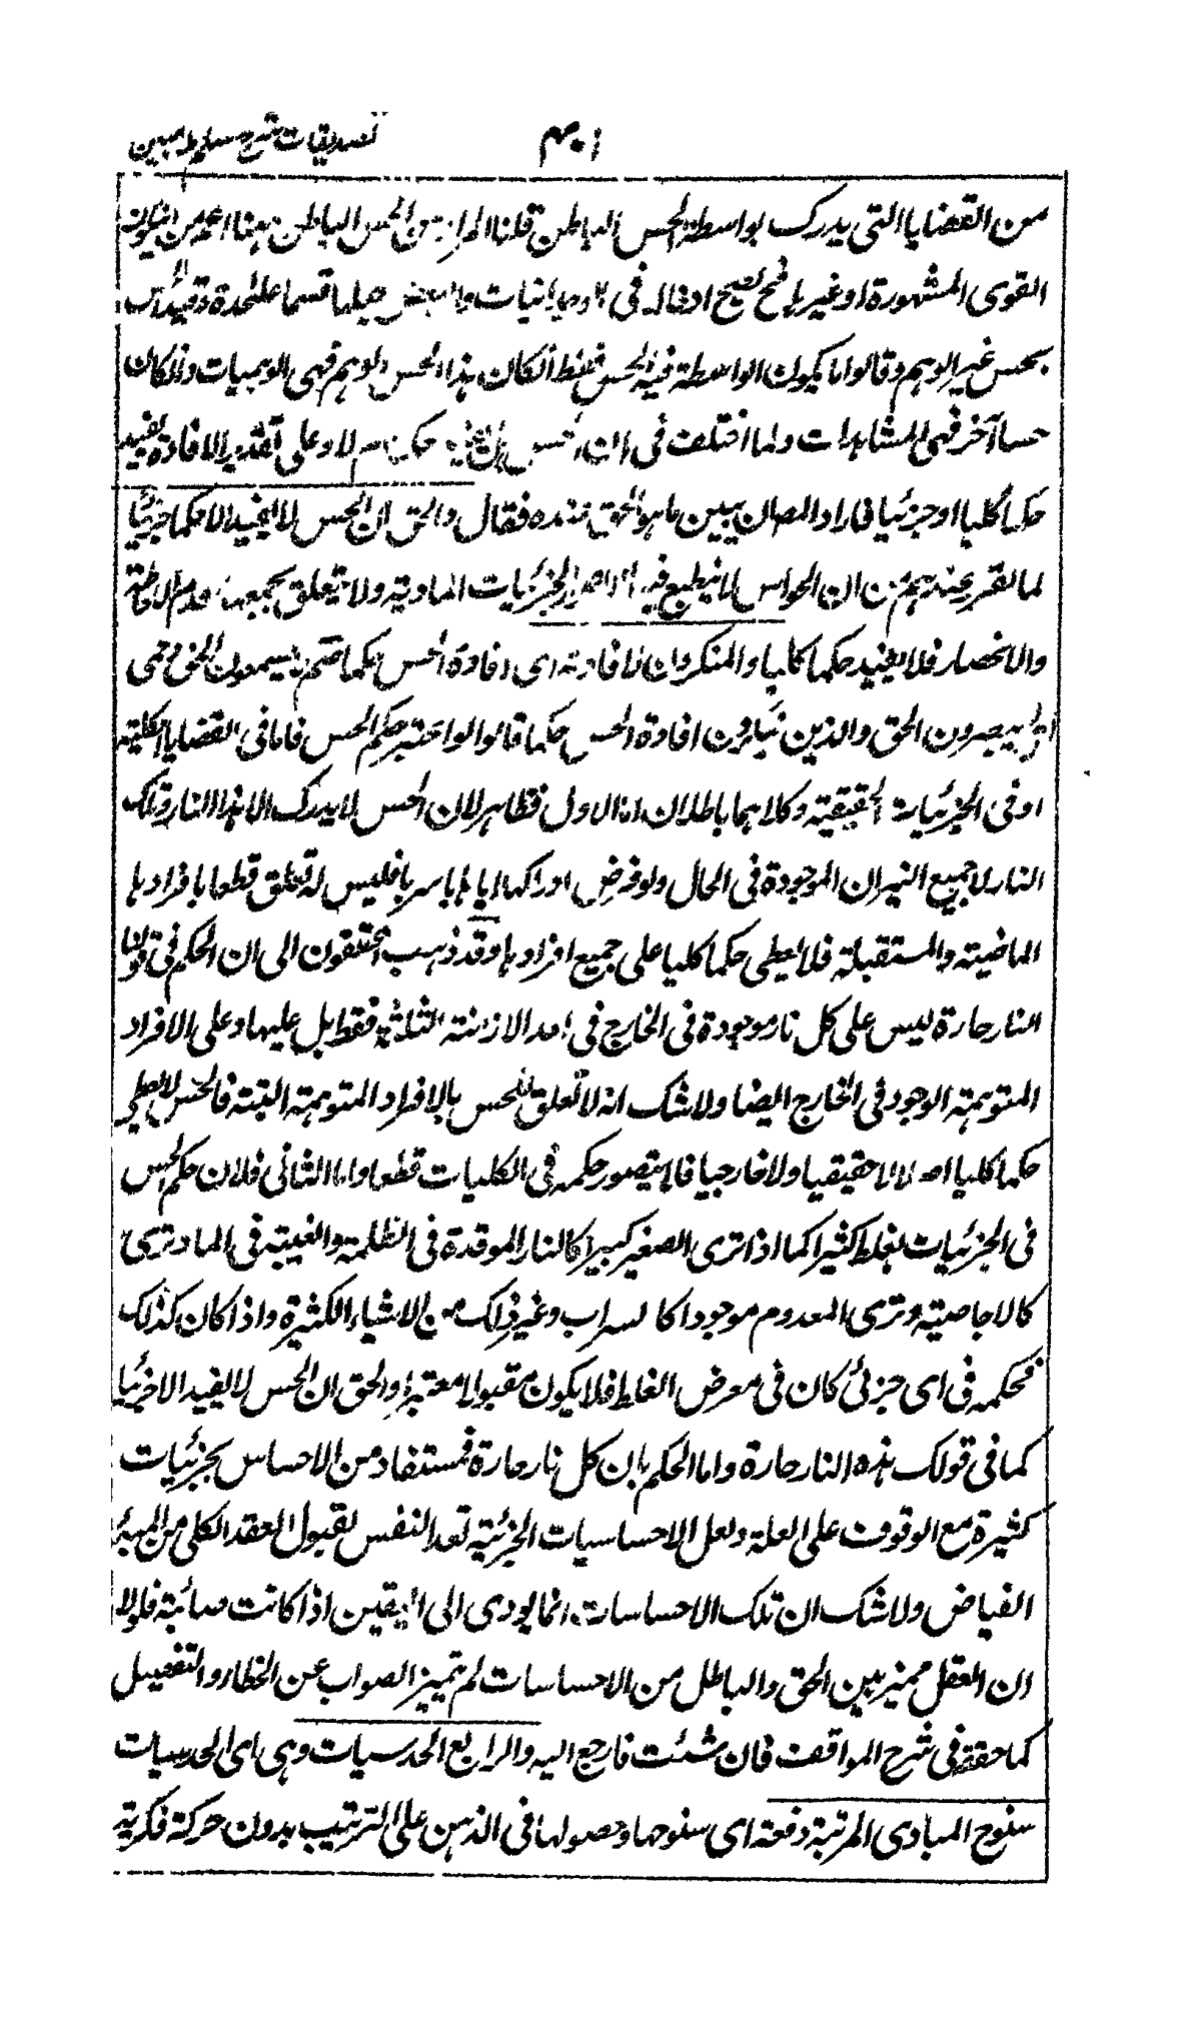 تصديقات شرح سلم ملا مبين
من القضايا التى يدرك بواسطة الحس الباطن قلنا المراد من الحس الباطن ههنا اعم من ان يكون
القوى المشهورة او غيرها فح يصح ادخاله فى الوجدانيات والبعض جعلها قسما علىحدة وقيد الحس
بحس غير الوهم وقالوا ما يكون الواسطة فيه الحس فقط انكان هذا الحس الوهم فهى الوهميات وانكان
حسا آخر فهى المشاهدات ولما اختلف فى ان الحس هل يفيد حكما ام لا وعلى تقدير الافادة يفيد
حكما كليا او جزئيا فاراد المص ان يبين ما هو الحق عنده فقال والحق ان الحس لا يفيد الا حكما جزئيا
لما تقرر عندهم من ان الحواس لا ينطبع فيها الا صور الجزئيات المادية ولا يتعلق بجميعها لعدم الاحاطة
والانحصار فلا يفيد حكما كليا والمنكرون لافادته اى افادة الحس حكما صم لا يسمعون الحق عمى
لا يبصرون الحق والذين ينكرون افادة الحس حكما قالوا لو اعتبر حكم الحس فاما فى القضايا الكلية
او فى الجزئيات الحقيقية وكلاهما باطلان اما الاول فظاهر لان الحس لا يدرك الا هذا النار وتلك
النار لا جميع النيران الموجودة فى الحال ولو فرض ادراكها اياها باسرها فليس له تعلق قطعا بافرادها
الماضية والمستقبلة فلا يعطى حكما كليا على جميع افرادها وقد ذهب المحققون الى ان الحكم فى قولنا
النار حارة ليس على كل نار موجودة فى الخارج فى احد الازمنة الثلثة فقط بل عليها وعلى الافراد
المتوهمة الوجود فى الخارج ايضا ولا شك انه لا تعلق للحس بالافراد المتوهمة البتة فالحس لا يعطى
حكما كليا اصلا لا حقيقيا ولا خارجيا فلا يتصور حكمه فى الكليات قطعا واما الثانى فلان حكم الحس
فى الجزئيات يغلط كثيرا كما اذا ترى الصغير كبيرا كالنار الموقدة فى الظلمة والعنبة فى الماء ترى
كالاجاصية وترى المعدوم موجودا كالسراب وغير ذلك من الاشياء الكثيرة واذا كان كذلك
فحكمه فى اى جزئى كان فى معرض الغلط فلا يكون مقبولا معتبرا والحق ان الحس لا يفيد الا جزئيا
كما فى قولك هذه النار حارة واما الحكم بان كل نار حارة فمستفاد من الاحساس بجزئيات
كثيرة مع الوقوف على العلة ولعل الاحساسات الجزئية تعد النفس لقبول العقد الكلى من المبدء
الفياض ولا شك ان تلك الاحساسات انما يودى الى اليقين اذا كانت صائبة فلولا
ان العقل مميز بين الحق والباطل من الاحساسات لم يتميز الصواب عن الخطاء والتفصيل
كما حققه فى شرح المواقف فان شئت فارجع اليه والرابع الحدسيات وهى اى الحدسيات
سنوح المبادى المرتبة دفعة اى سنوحها وحصولها فى الذهن على الترتيب بدون حركة فكرية